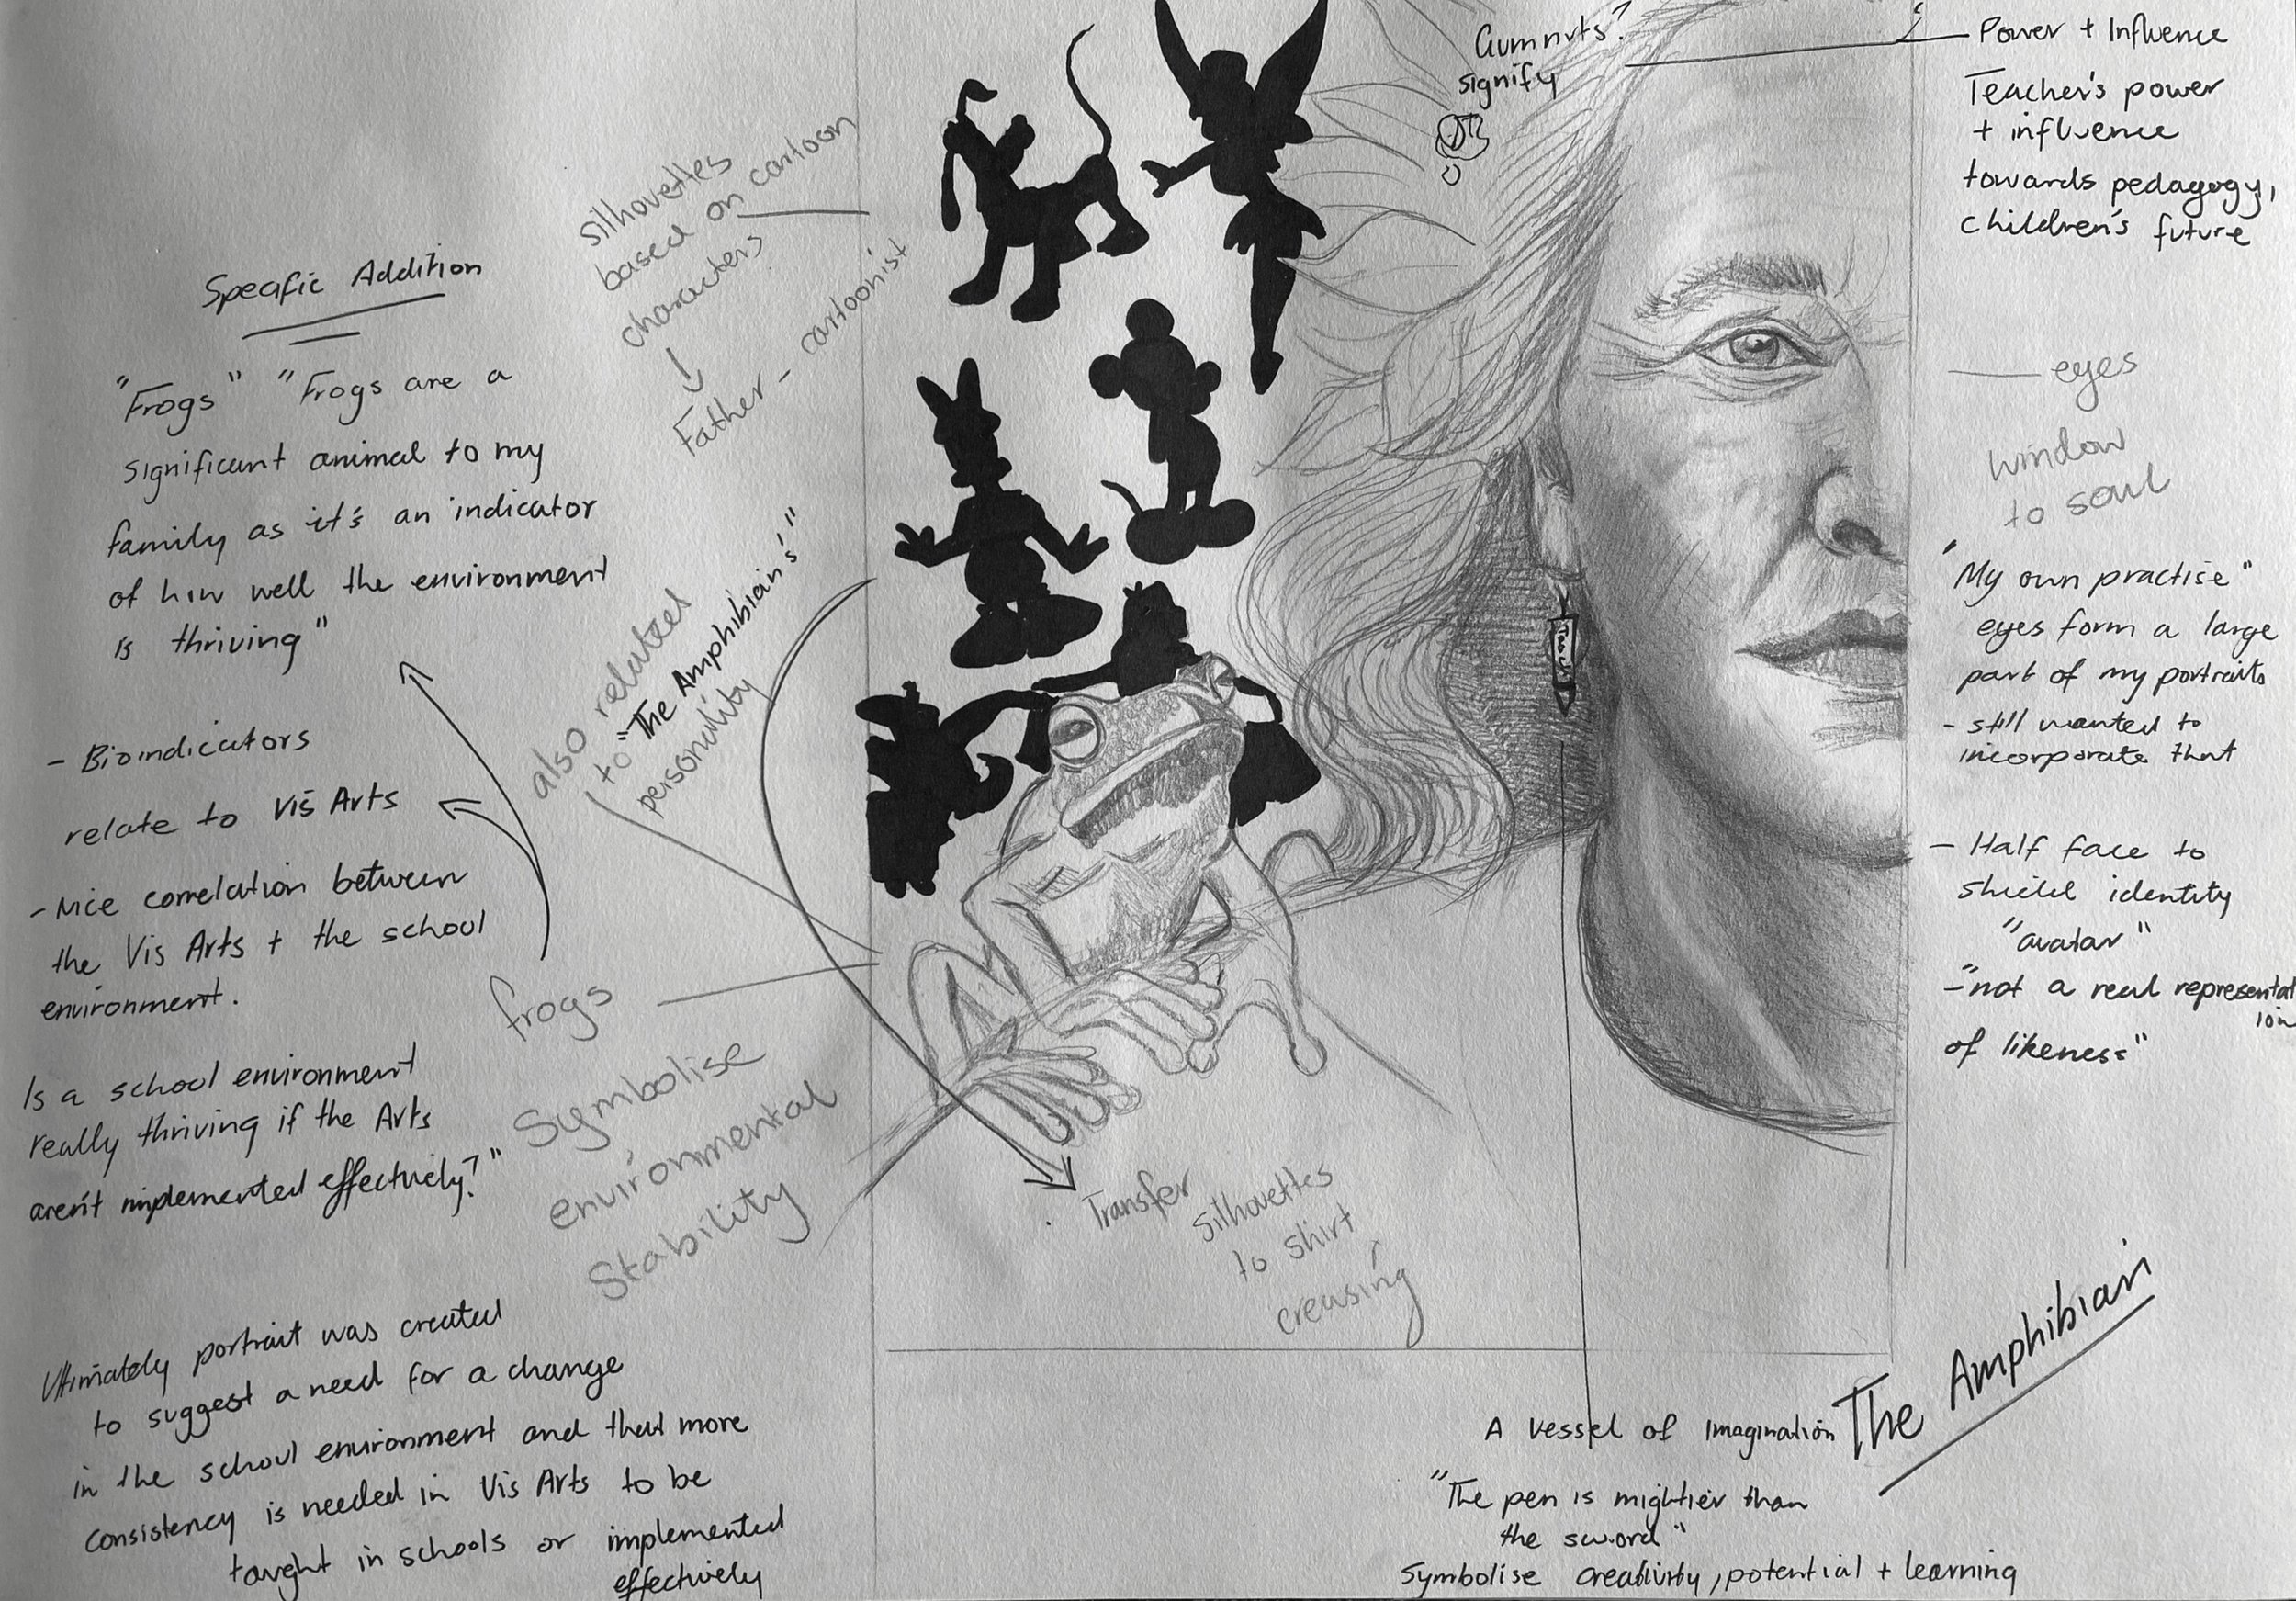 Specific Addition
"Frogs" "Frogs are a
significant animal to my
family as it's an indicator
of how well the environment
is thriving"
- Bioindicators
relate to Vis Arts
- Nice correlation between
the Vis Arts + the school
environment.
Is a school environment
really thriving if the Arts
aren't implemented effectively?"
Ultimately portrait was created
to suggest a need for a change
in the school environment and that more
consistency is needed in Vis Arts to be
taught in schools or implemented
effectively
silhouettes
based on cartoon
characters
Father - cartoonist
also relates
to "The Amphibian's"
personality
frogs
Symbolise
environmental
Stability
Gumnuts?
signify
Transfer
silhouettes
to shirt
creasing
Power + Influence
Teacher's power
+ influence
towards pedagogy,
children's future
eyes
window
to soul
"My own practise"
eyes form a large
part of my portraits
- still wanted to
incorporate that
- Half face to
shield identity
"avatar"
- "not a real representat
ion
of likeness"
The Amphibian
A vessel of Imagination
"The pen is mightier than
the sword"
Symbolise creativity, potential + learning